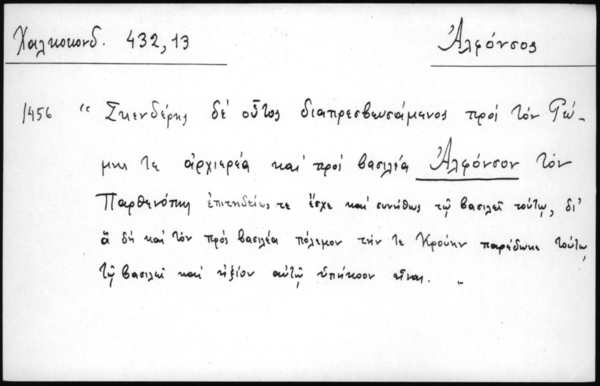 Χαλκοκονδ. 432,13 Ἀλφόνσος
1456 “ Σκενδέρης δέ οὗτος διαπρεσβευσάμενος πρός τόν Ῥώ-
μης τε ἀρχιερέα καί πρός βασιλέα Ἀλφόνσον τόν
Παρθενόπης ἐπιτηδείως τε ἔσχε καί συνήθως τῷ βασιλεῖ τούτῳ, δι’
ἅ δή καί τόν πρός βασιλέα πόλεμον τήν τε Κρούην παρέδωκε τούτῳ
τῷ βασιλεῖ καί ἠξίου αὐτῷ ὑπήκοον εἶναι. „